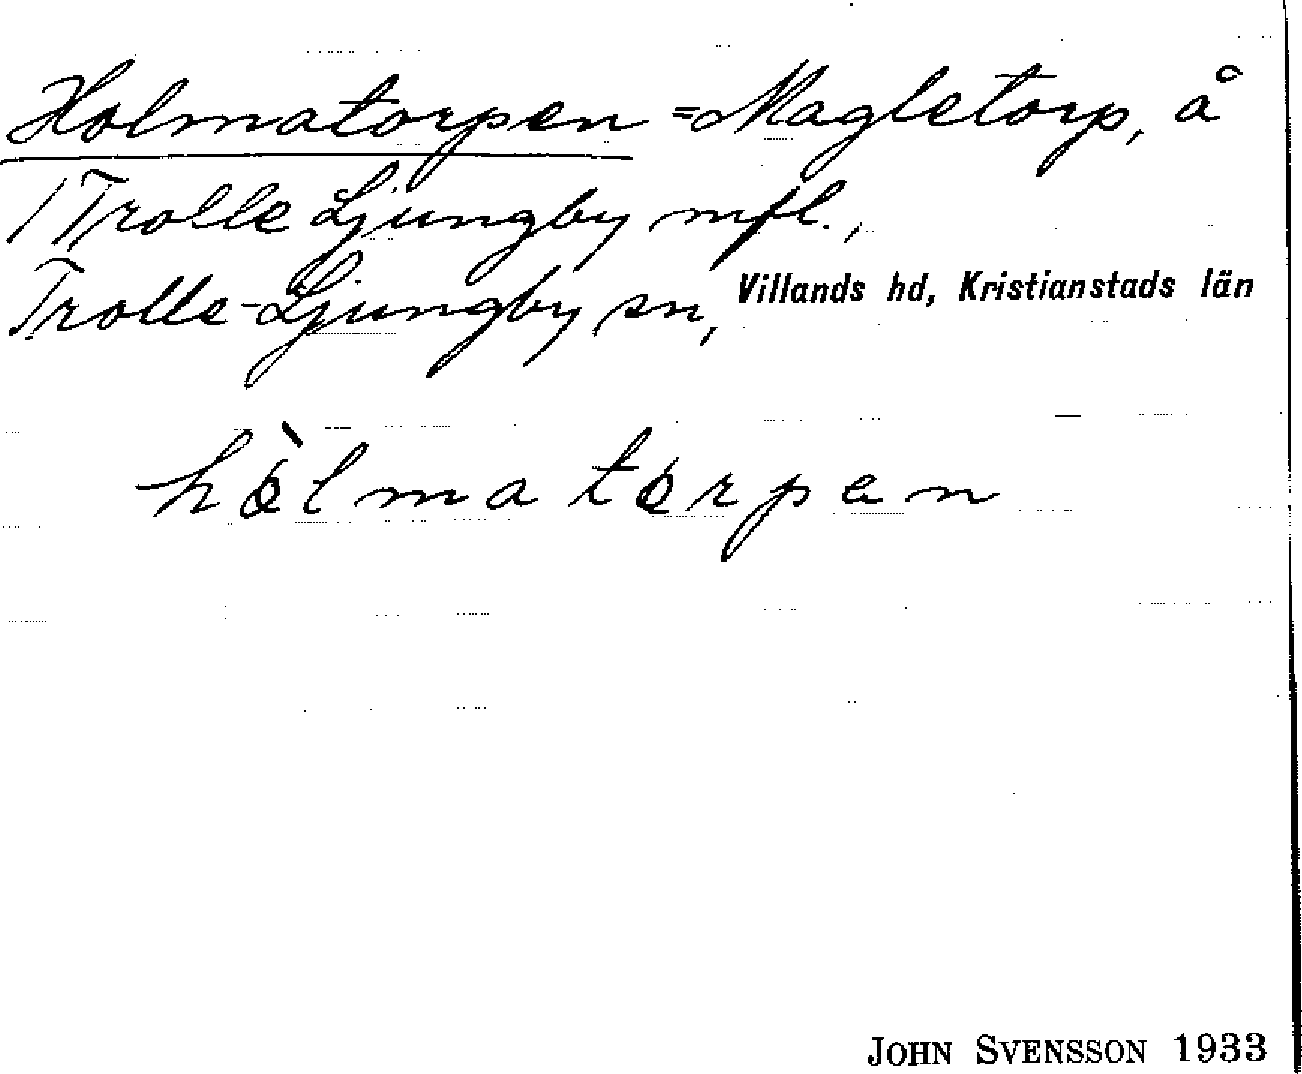 Holmatorpen = Magletorp, å
1 Trolle Ljungby mfl.,
Trolle-Ljungby sn, Villands hd, Kristianstads län
hòlmatorpen
JOHN SVENSSON 1933